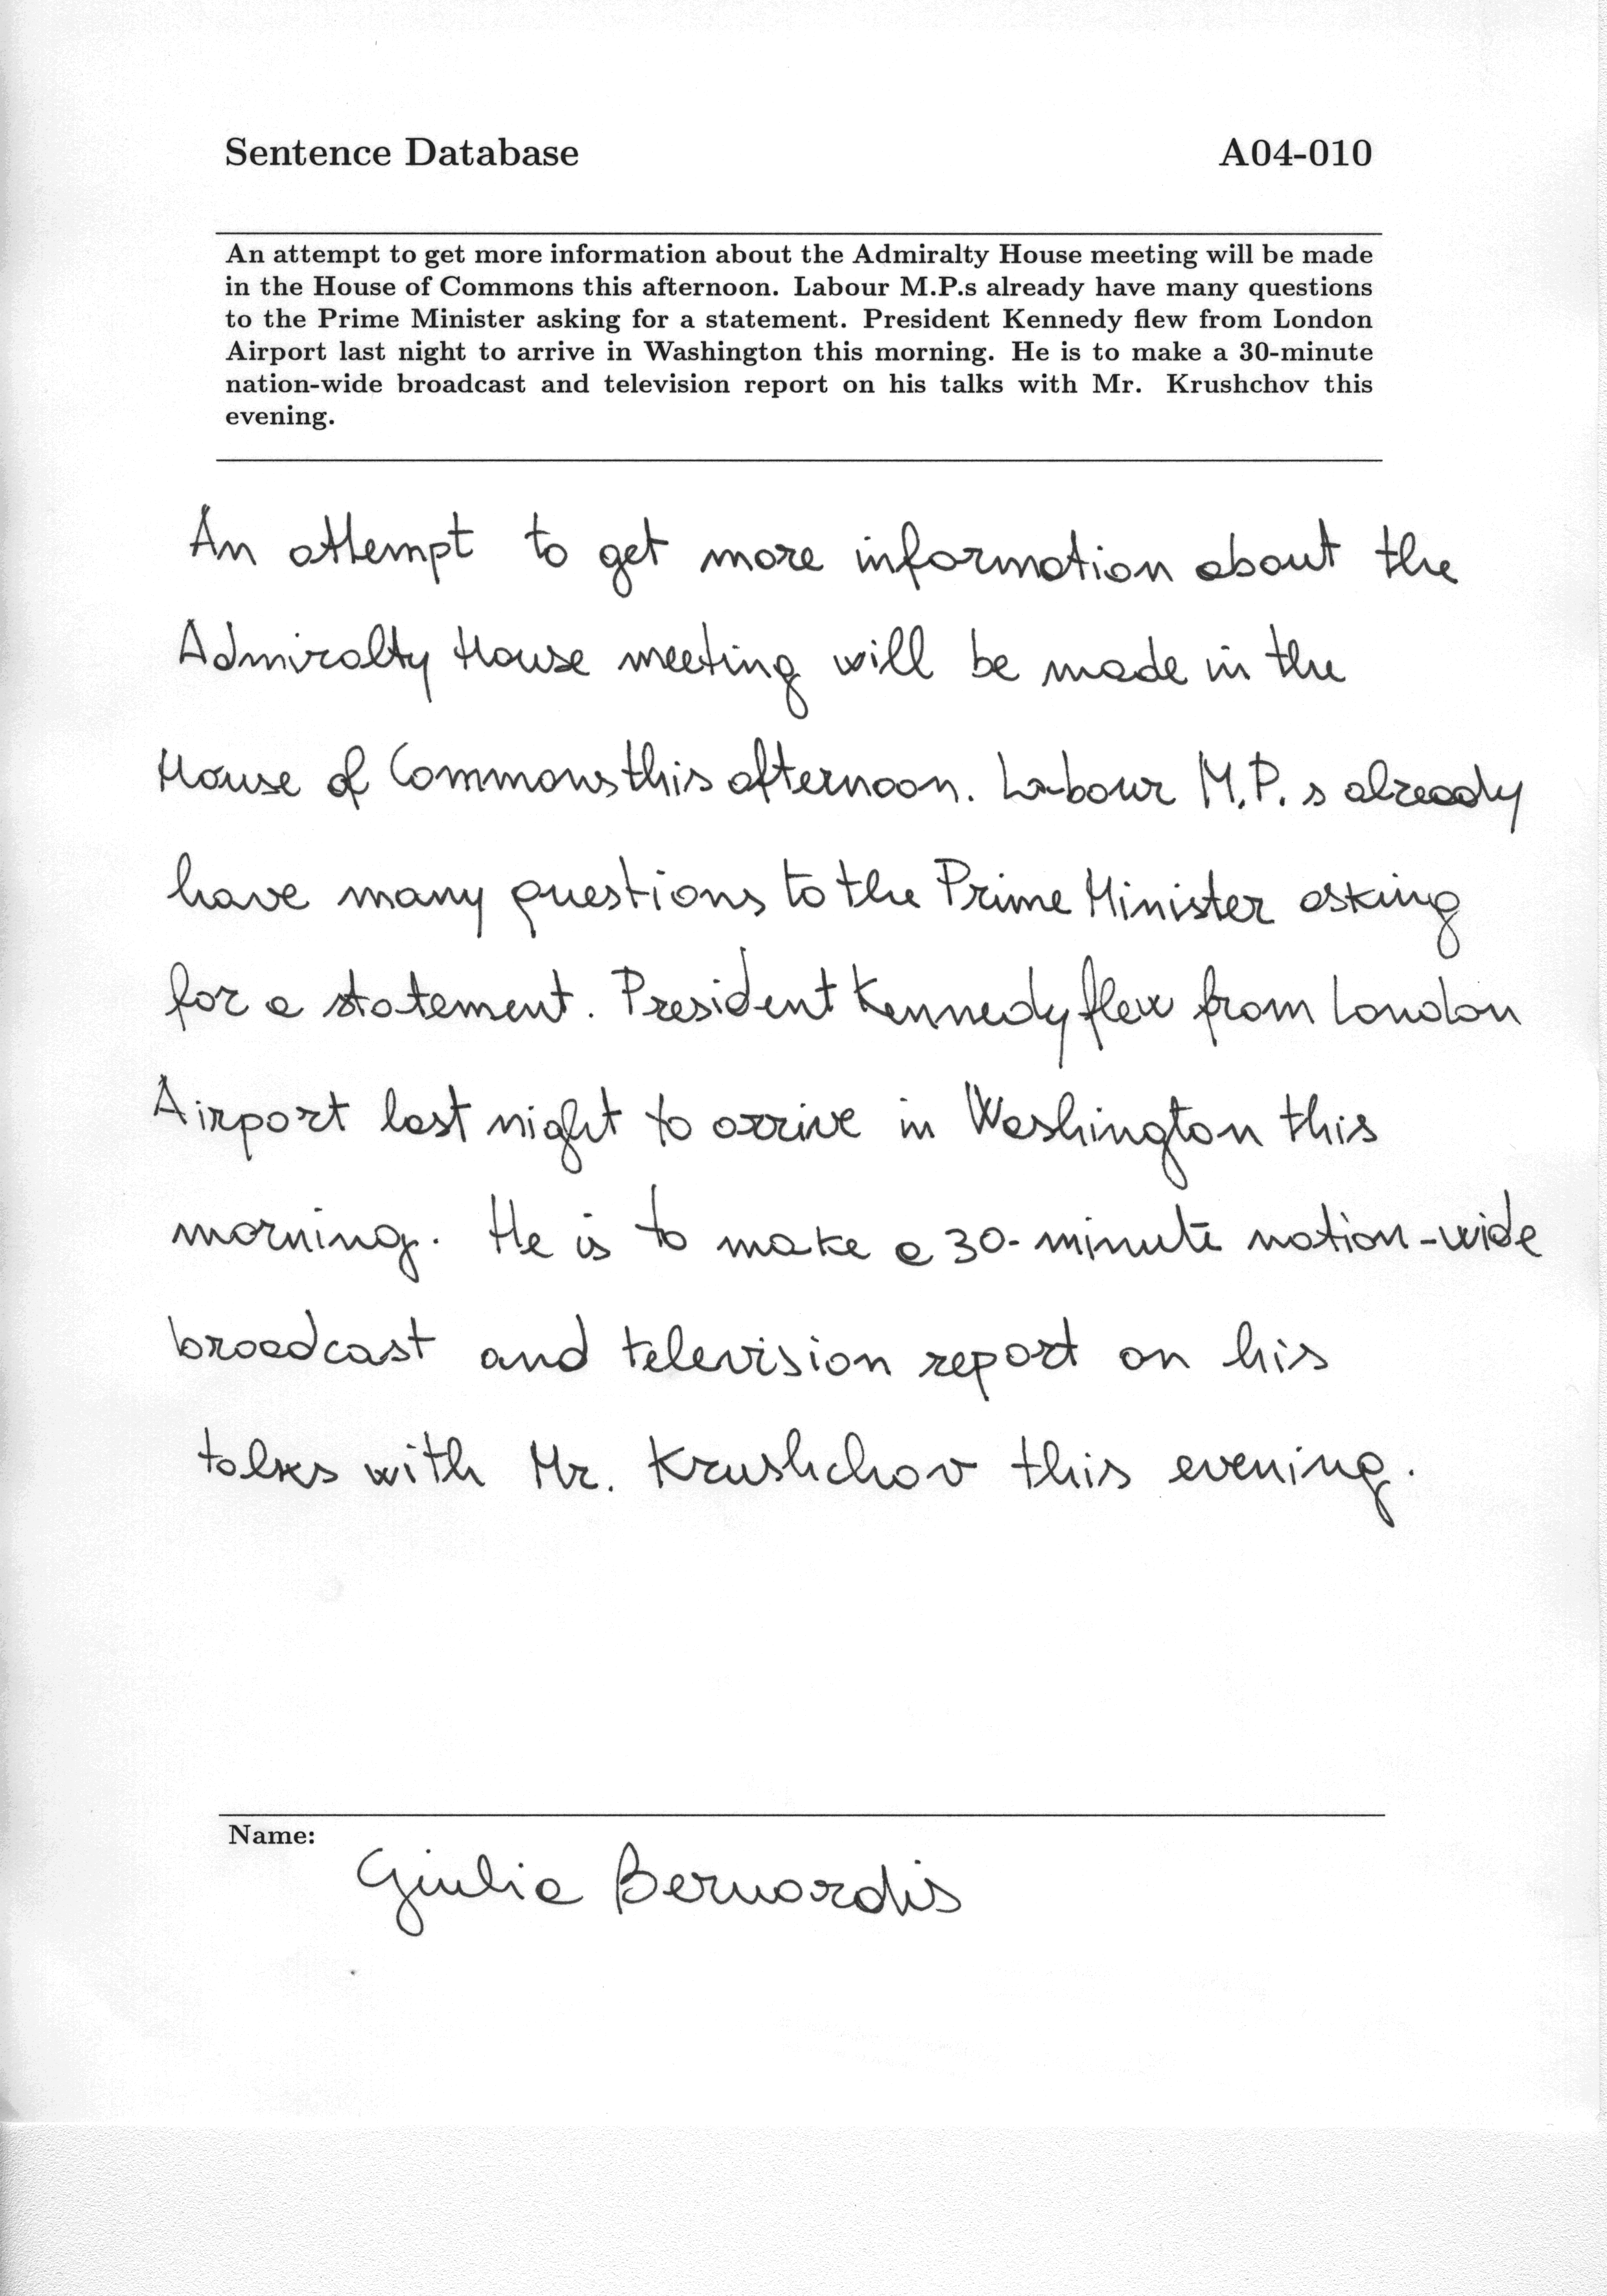 Sentence Database A04-010
An attempt to get more information about the Admiralty House meeting will be made
in the House of Commons this afternoon. Labour M.P.s already have many questions
to the Prime Minister asking for a statement. President Kennedy flew from London
Airport last night to arrive in Washington this morning. He is to make a 30-minute
nation-wide broadcast and television report on his talks with Mr. Krushchov this
evening.
An attempt to get more information about the
Admiralty House meeting will be made in the
House of Commons this afternoon. Labour M.P.s already
have many questions to the Prime Minister asking
for a statement. President Kennedy flew from London
Airport last night to arrive in Washington this
morning. He is to make a 30-minute nation-wide
broadcast and television report on his
talks with Mr. Krushchov this evening.
Name:
Giulia Bernardis